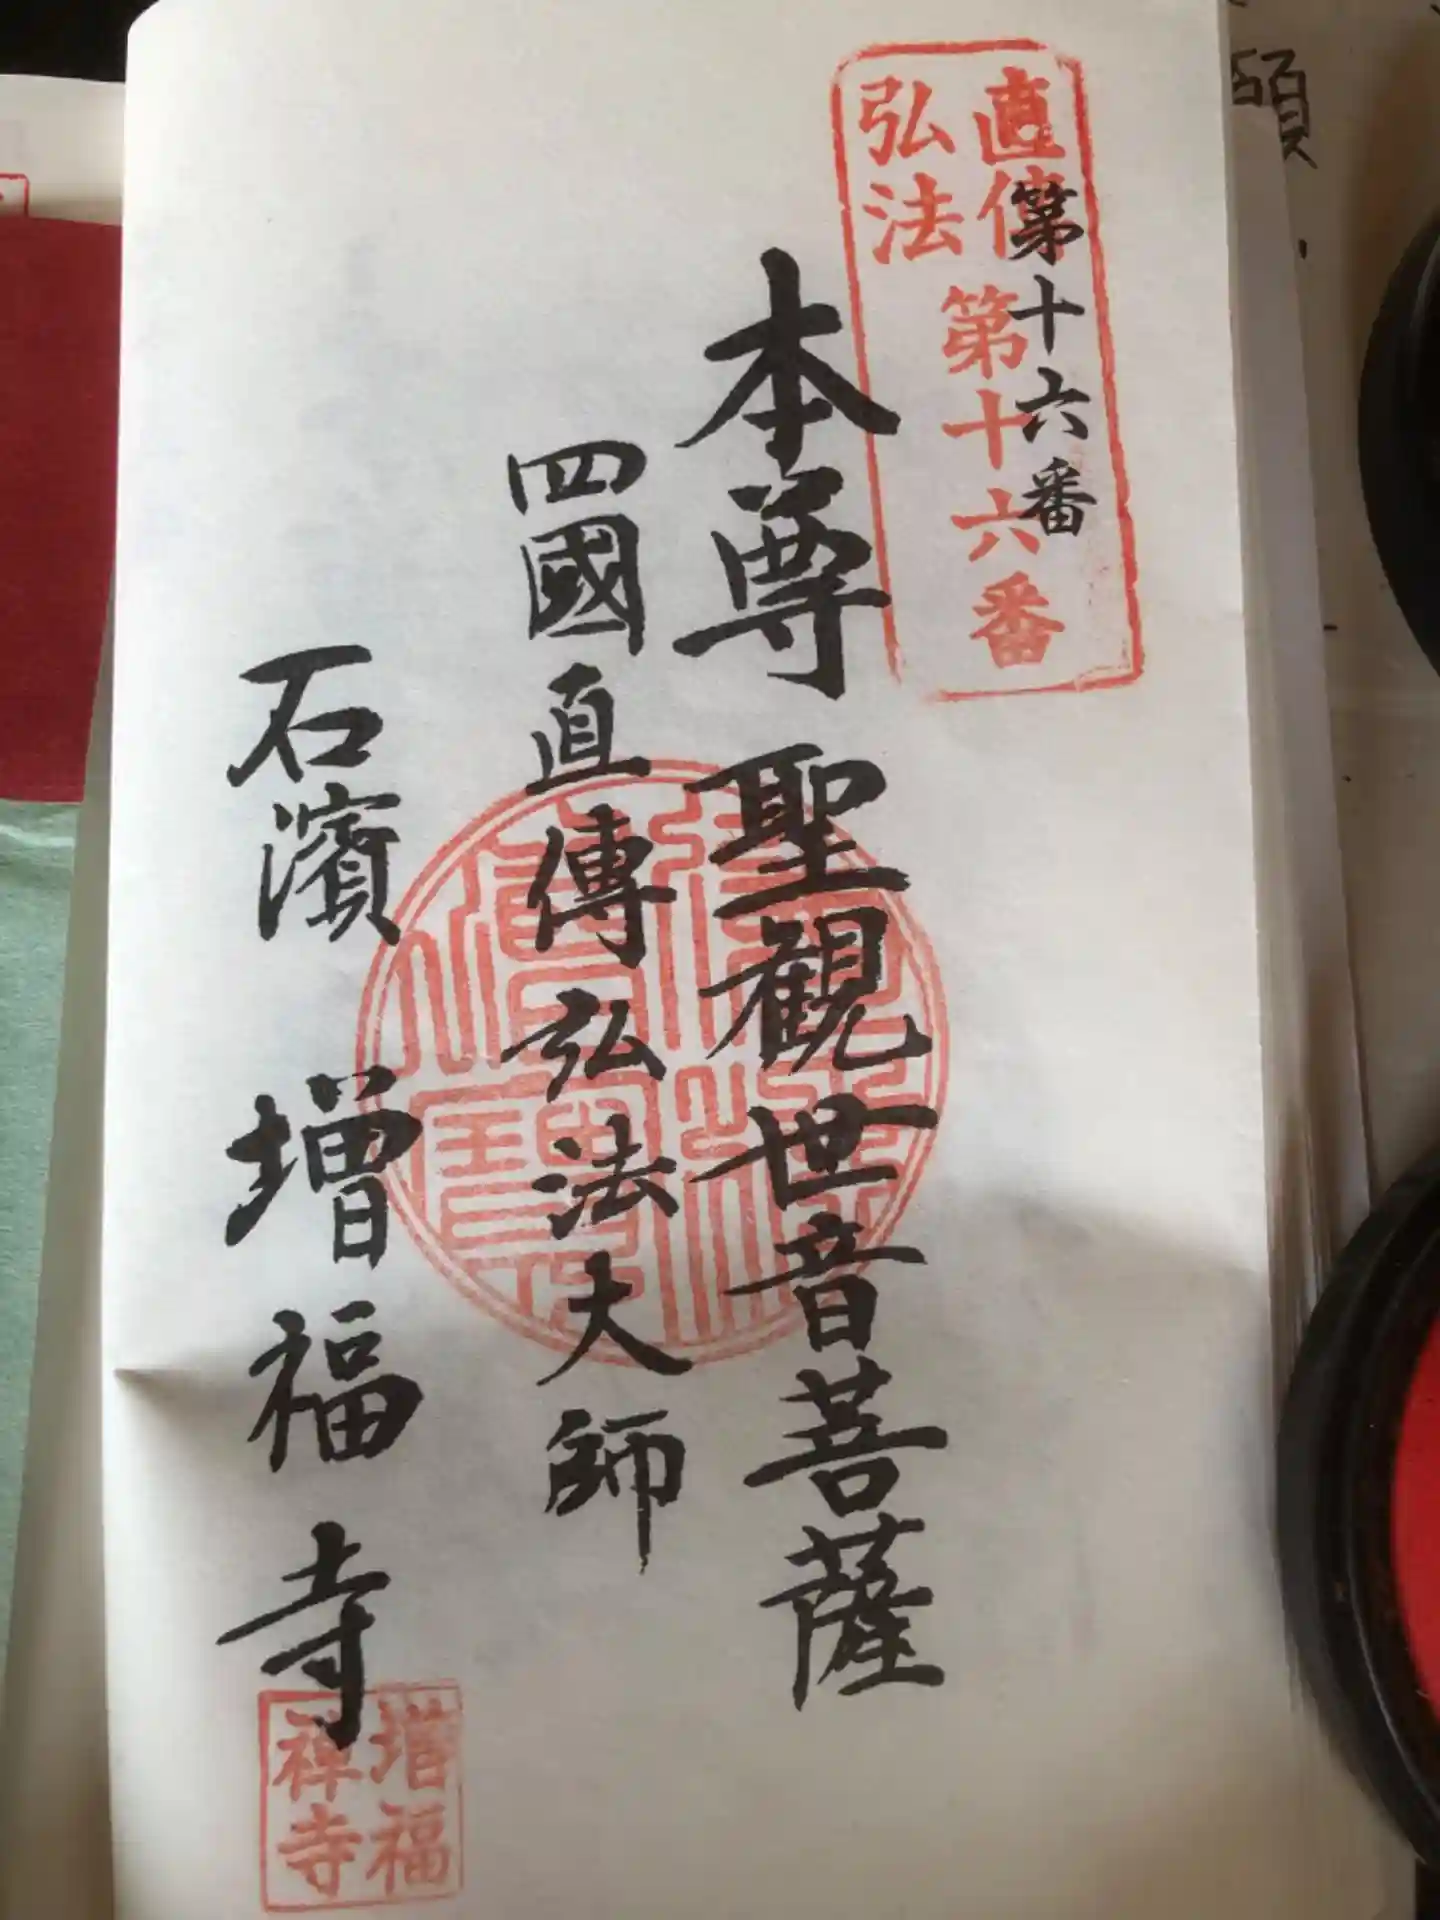 直傳
弘法
第十六番
第十六番
本尊 聖観世音菩薩
四國直傳弘法大師
石濱 增福寺
增福
禅寺
願